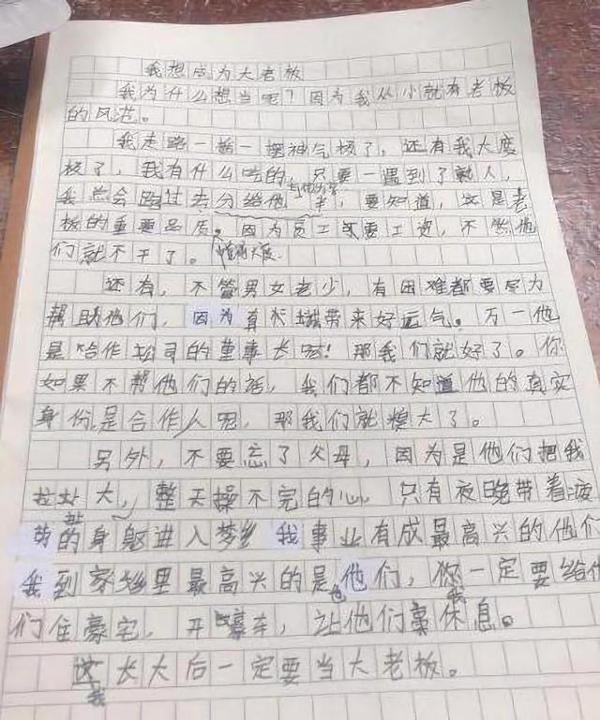 我想成为大老板
我为什么想当呢？因为我从小就有老板
的风范。
我走路一摇一摆神气极了，还有我大度
极了，我有什么吃的，只要一遇到了熟人，
我总会跑过去分给他 半，要知道，这是老
板的重要品质。因为员工需要工资，不然他
们就不干了。
还有，不管男女老少，有困难都要尽力
帮助他们，因为真心 带来好运气。万一他
是哈作公司的董事长呢！那我们就好了。你
如果不帮他们的话，我们都不知道他的真实
身份是合作人呢，那我们就糗大了。
另外，不要忘了父母，因为是他们把我
拉扯大，整天操不完的心 只有夜晚带着疲
劳的身躯进入梦乡 我事业有成最高兴的他们
是
我到家乡里最高兴的是他们，你一定要给他
也 我
们住豪宅，开豪车，让他们 休息。
这长大后一定要当大老板。
我